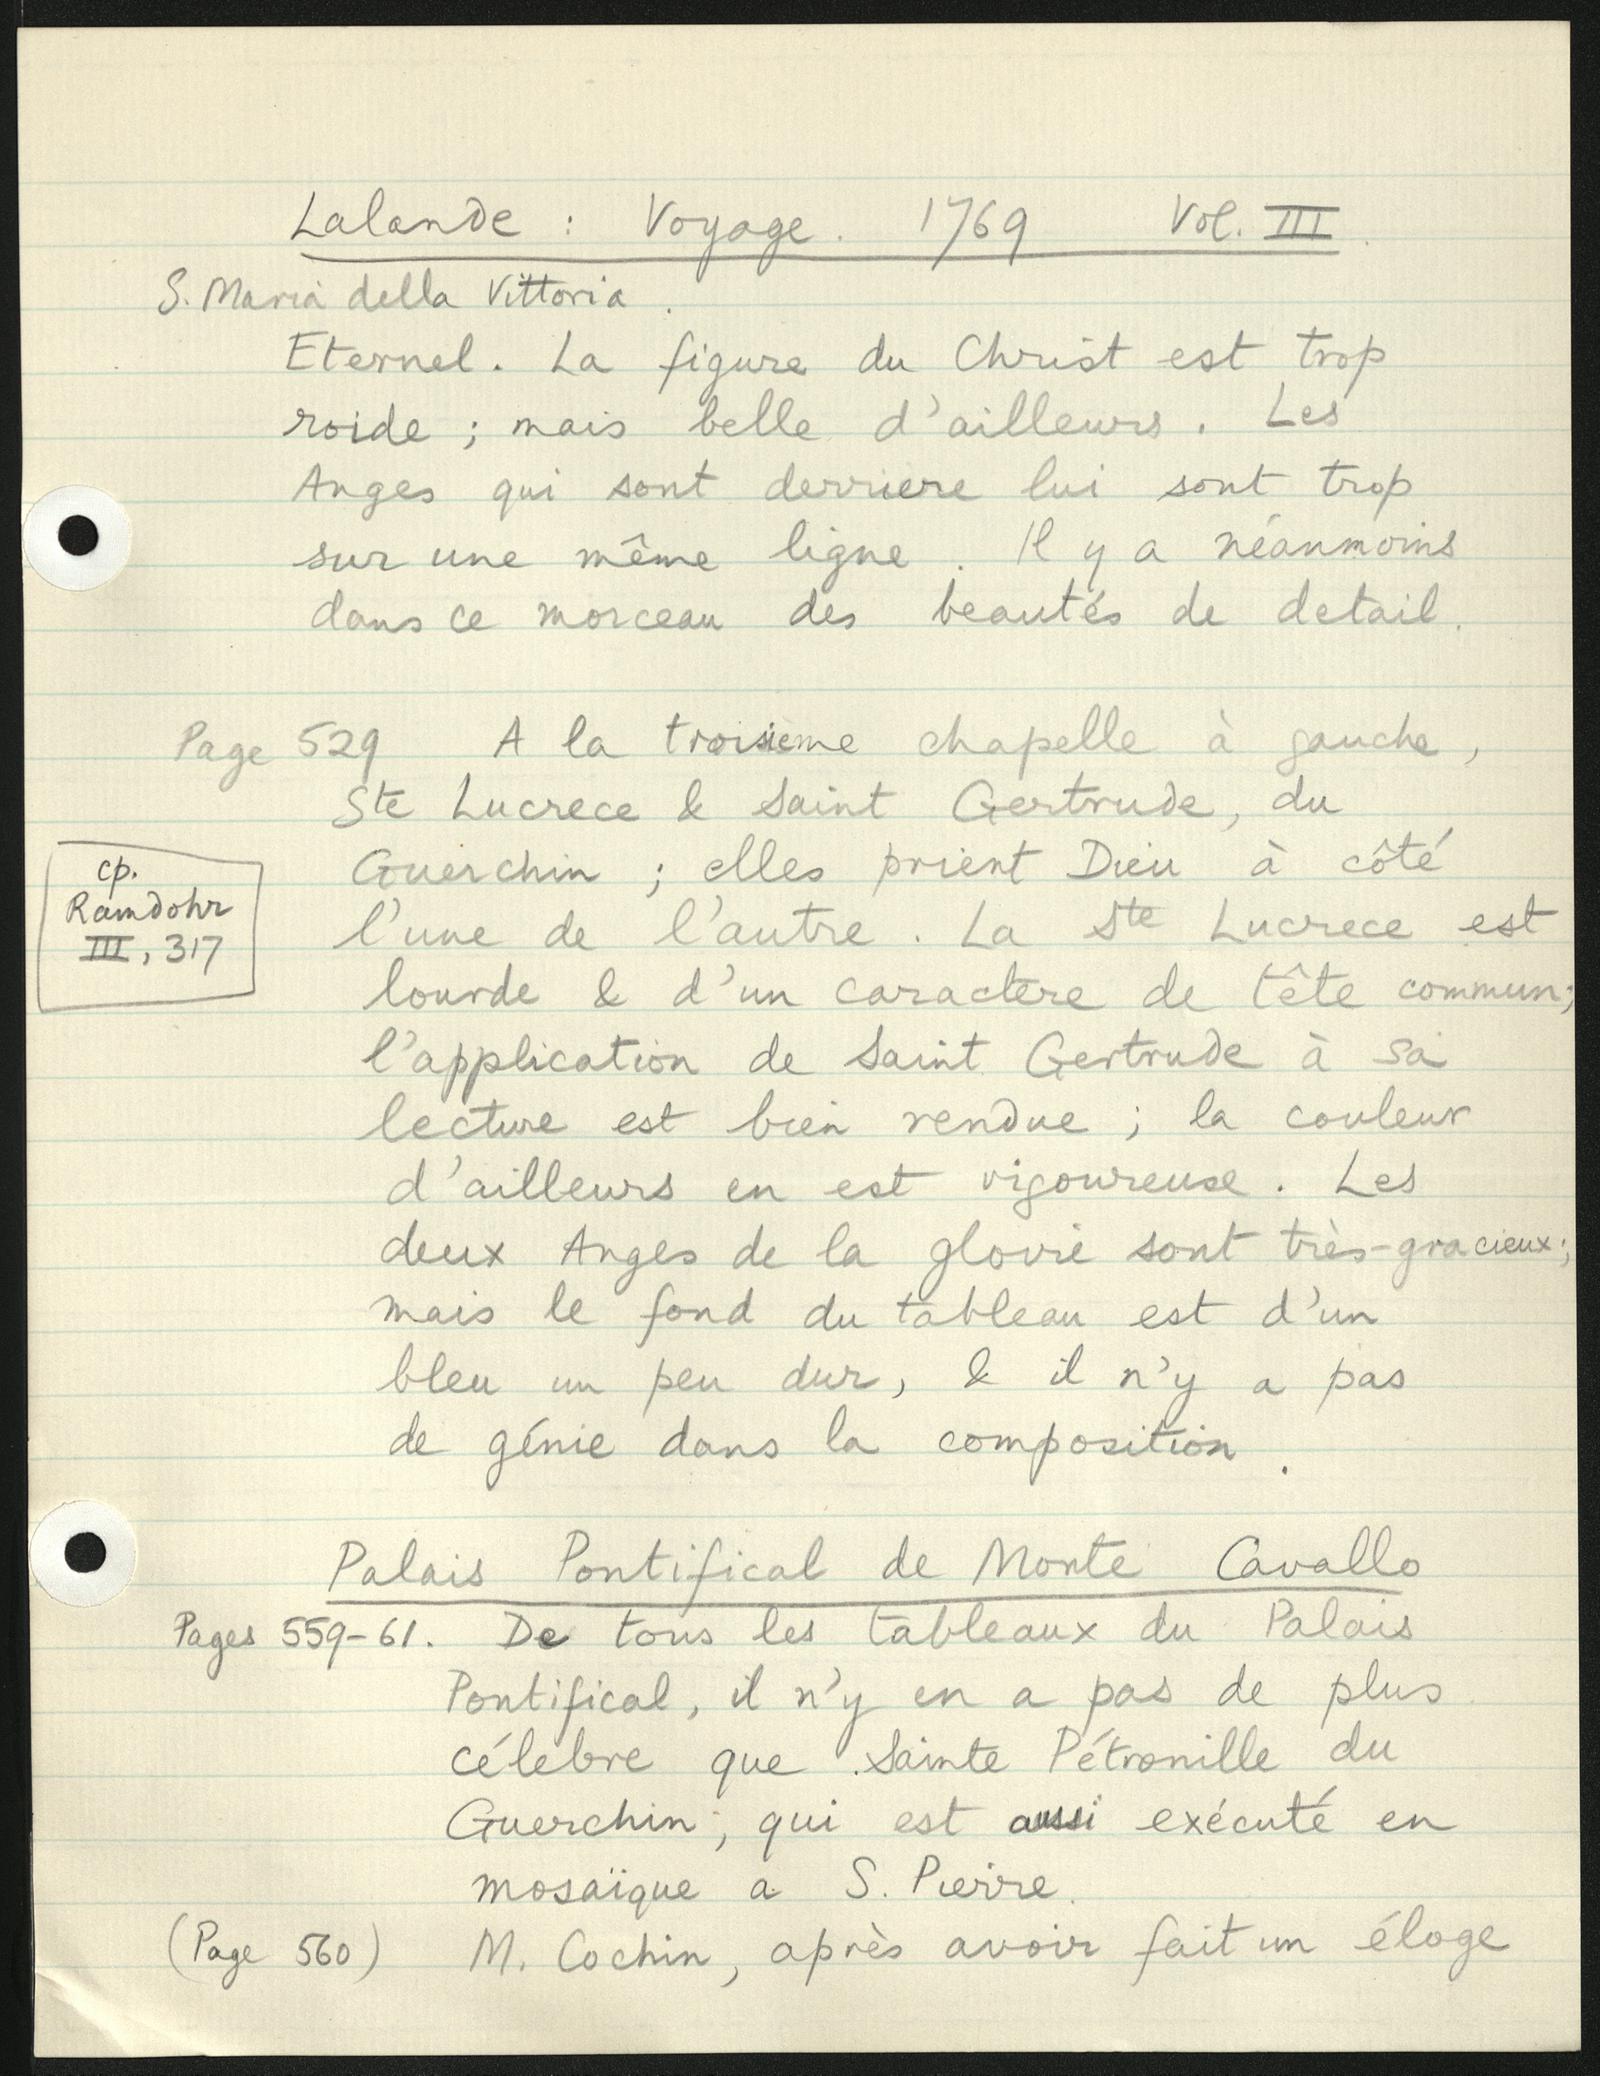 Lalande : Voyage. 1769 Vol. III.
S. Maria della Vittoria.
Eternel. La figure du Christ est trop
roide ; mais belle d'ailleurs. Les
Anges qui sont derriere lui sont trop
sur une même ligne. Il y a néanmoins
dans ce morceau des beautés de detail.
Page 529 A la troisieme chapelle à gauche,
Ste Lucrece & Saint Gertrude, du
Guerchin ; elles prient Dieu à côté
l'une de l'autre. La Ste Lucrece est
cp.
Ramdohr
III, 317
lourde & d'un caractere de tête commun;
l'application de Saint Gertrude à sa
lecture est bien rendue ; la couleur
d'ailleurs en est vigoureuse. Les
deux Anges de la gloire sont très-gracieux;
mais le fond du tableau est d'un
bleu un peu dur, & il n'y a pas
de génie dans la composition.
Palais Pontifical de Monte Cavallo
Pages 559-61. De tous les tableaux du Palais
Pontifical, il n'y en a pas de plus
célebre que Sainte Pétronille du
Guerchin, qui est aussi exécuté en
mosaïque a S. Pierre.
(Page 560) M. Cochin, après avoir fait un éloge